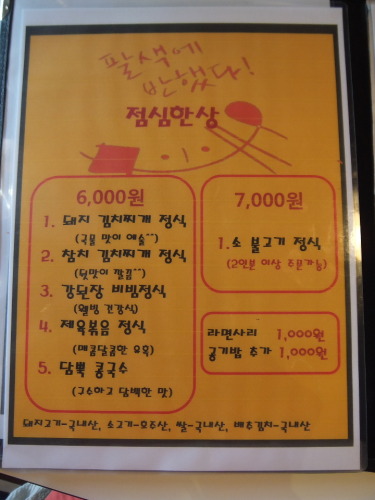 팔색에
반했다!
점심한상
6,000원
1. 돼지 김치찌개 정식
(국물 맛이 예술^^)
2. 참치 김치찌개 정식
(뒷맛이 깔끔^^)
3. 강된장 비빔정식
(웰빙 건강식)
4. 제육볶음 정식
(매콤달콤한 유혹)
5. 담뿍 콩국수
(구수하고 담백한 맛)
7,000원
1. 소 불고기 정식
(2인분 이상 주문가능)
라면사리 1,000원
공기밥 추가 1,000원
돼지고기-국내산, 소고기-호주산, 쌀-국내산, 배추김치-국내산